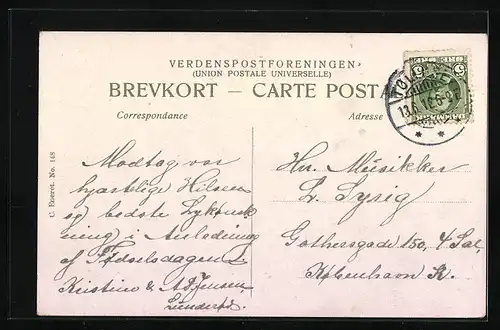 VERDENSPOSTFORENINGEN
(UNION POSTALE UNIVERSELLE)
BREVKORT — CARTE POSTA
Correspondance
Adresse
5 5
C. Rostret. No. 148
Modtag vor
hjærtelige Hilsen
og bedste Lykønsk
ning i Anledning
af Fødselsdagen.
Kristine & A. Jensen
Hr. Musikker
L. Sysig
Gothersgade 150, 4 Sal,
København K.